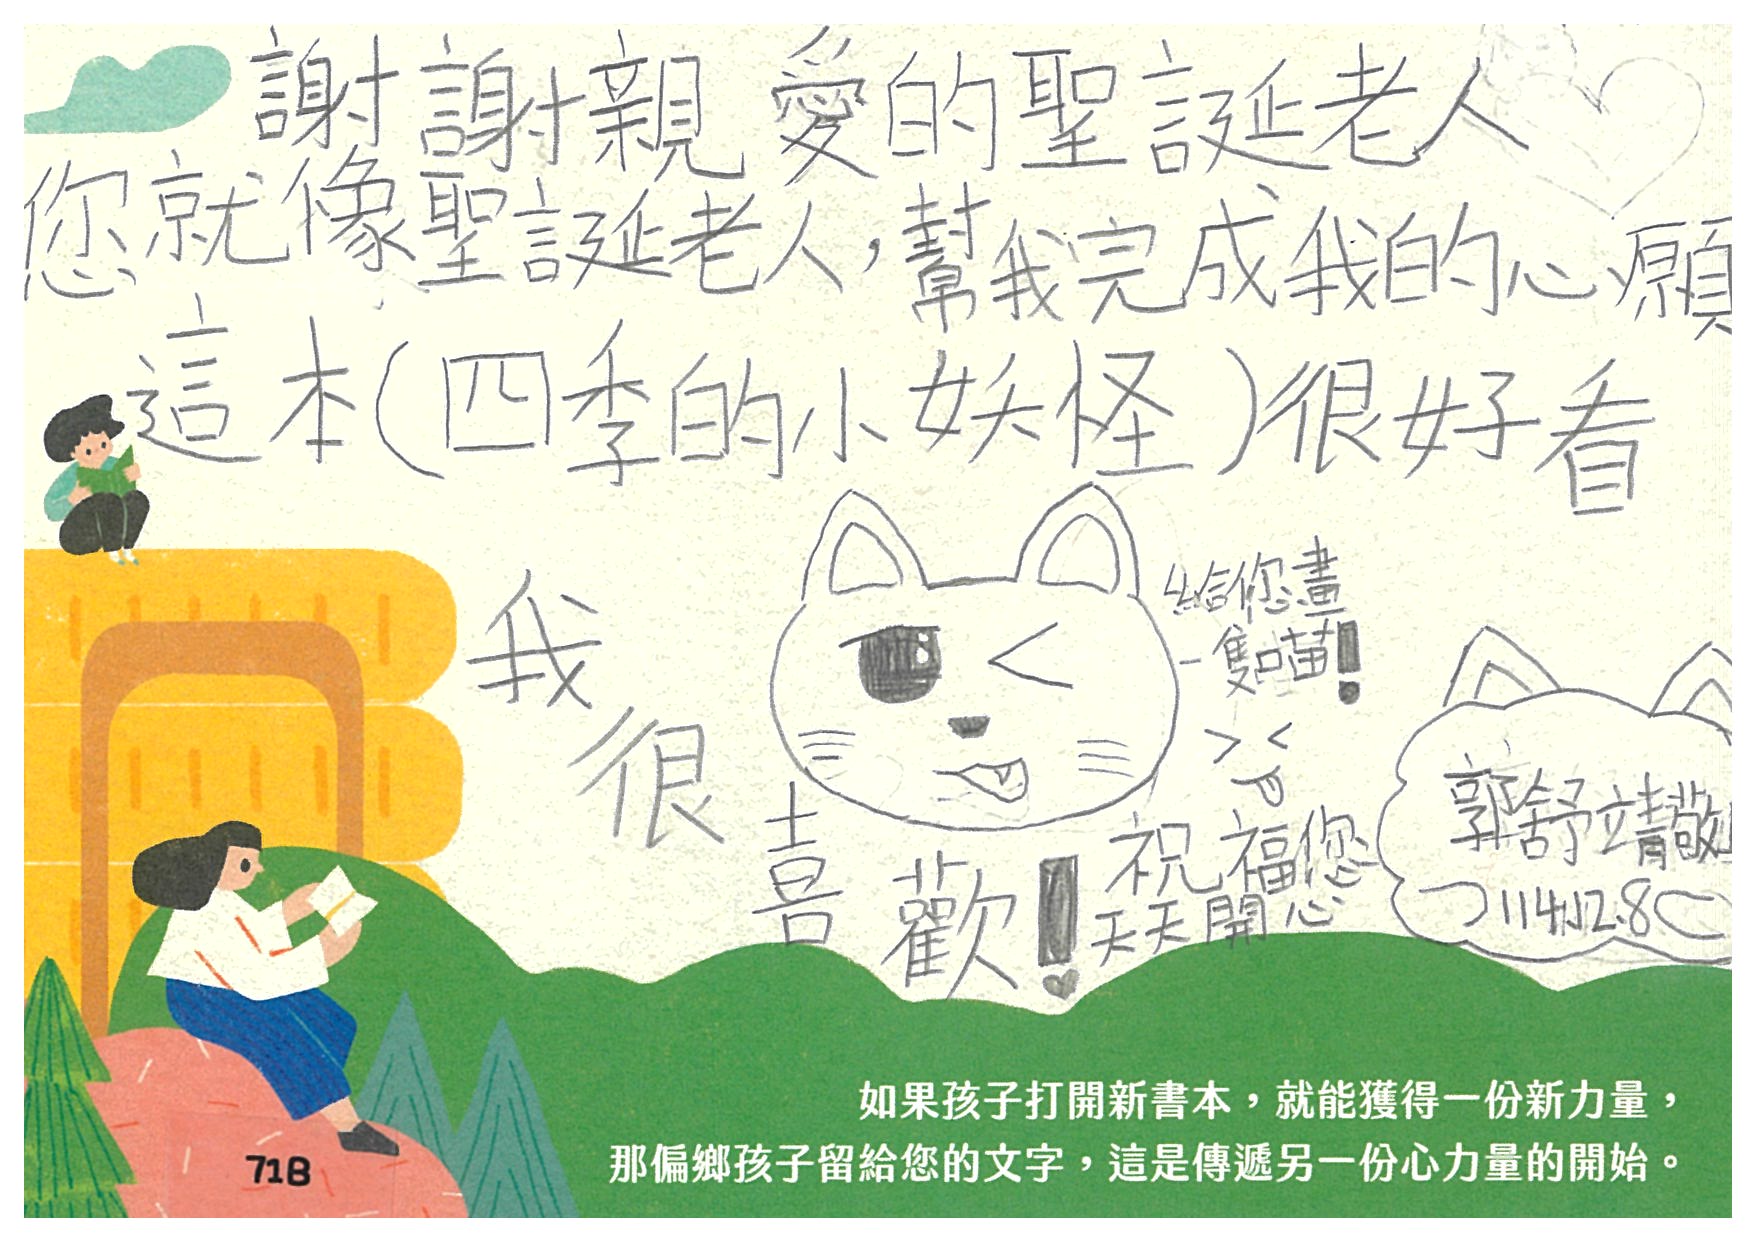 謝謝親愛的聖誕老人
您就像聖誕老人,幫我完成我的心願
這本(四季的小妖怪)很好看
我
很
喜
歡!
給您畫
一隻喵!
祝福您
天天開心
郭舒靖敬上
114.12.8
如果孩子打開新書本，就能獲得一份新力量，
那偏鄉孩子留給您的文字，這是傳遞另一份心力量的開始。
71B